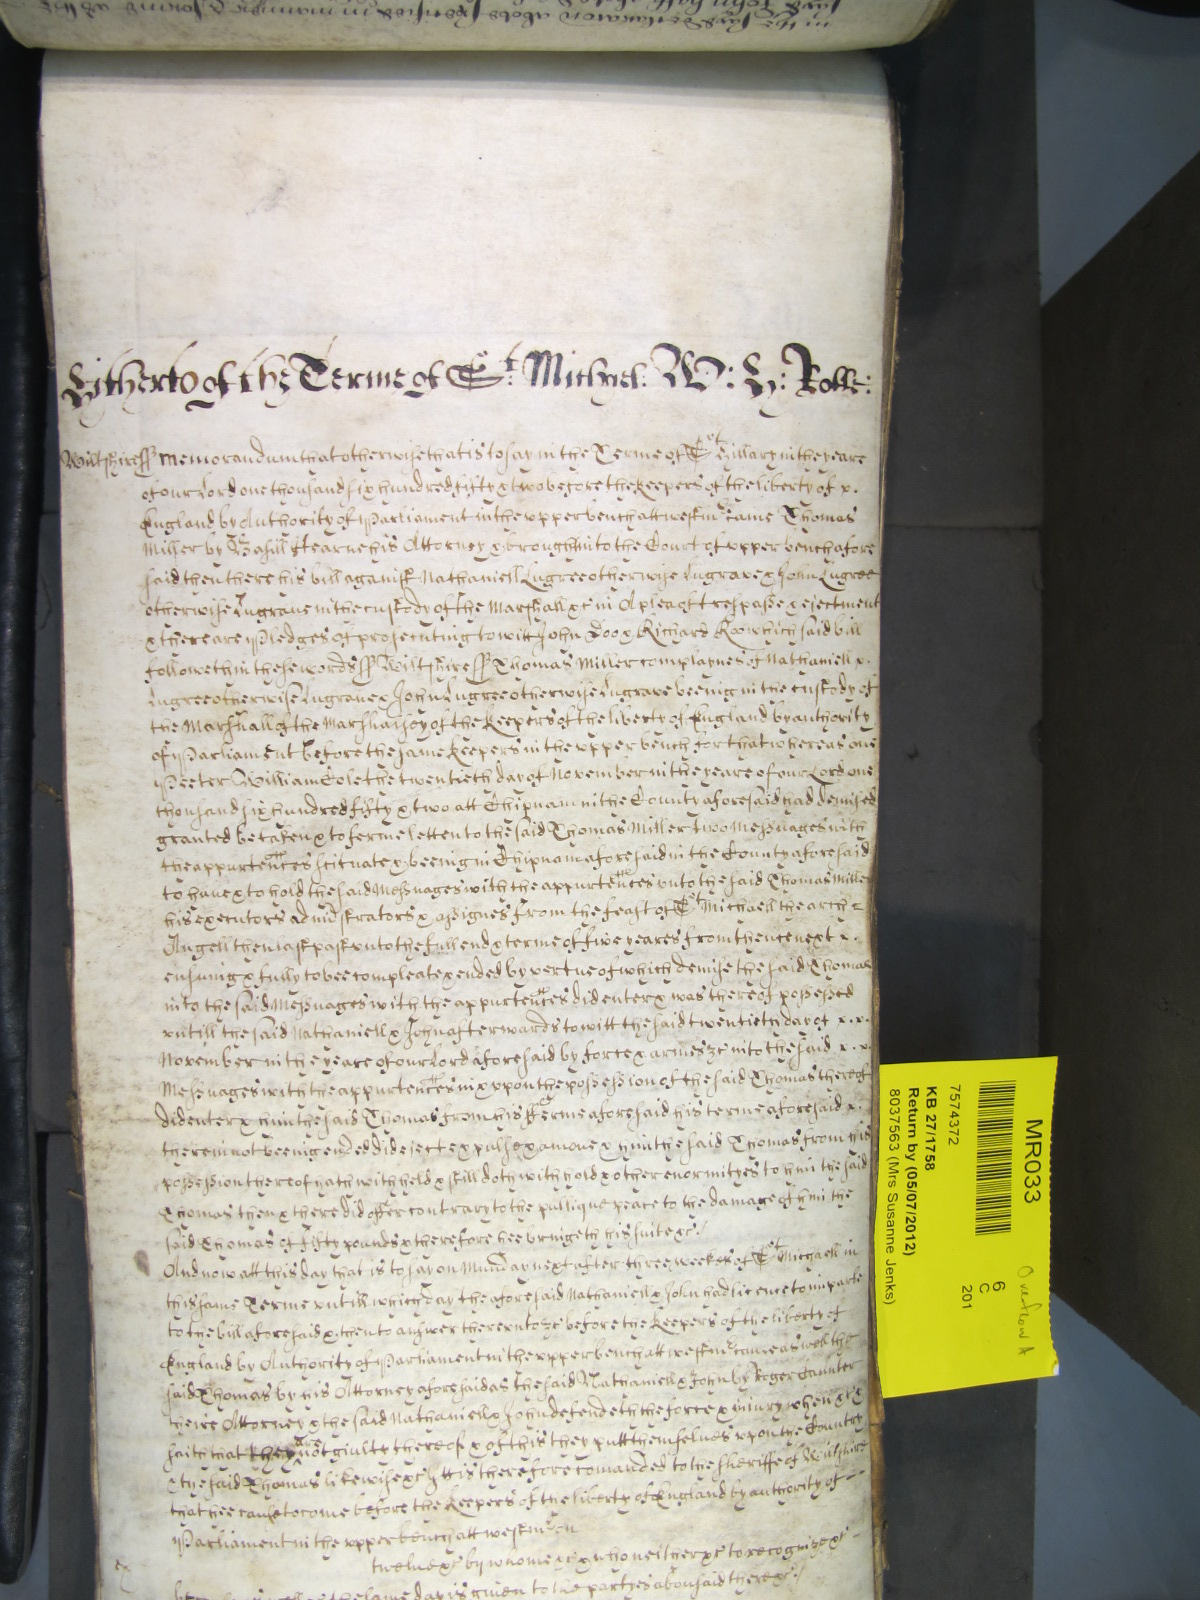 Hitherto of the Terme of St. Michael: W: H: Rolle:
Wiltshire ss Memorandum that otherwise that is to say in the Terme of St Hillary in the yeare
of our Lord one thousand six hundred fifty & two before the keepers of the liberty of x.
England by Authority of Parliament in the upper bench att westmr Came Thomas
Miller by Basill Hearne his Attorney & brought into the Court of upper bench afore
said then there his bill against Nathaniell Lugree otherwise Lugrave & John Lugree
otherwise Lugrave in the custody of the Marshall &c in A plea of trespasse & ejectment
& there are Pledges of prosecuting to witt John Doo & Richard Roo which said bill
followeth in these words ss Wiltshire ss Thomas Miller complaynes of Nathaniell x.
Lugree otherwise Lugrave & John Lugree otherwise Lugrave beeing in the custody of
the Marshall of the Marshalsey of the keepers of the liberty of England by authority
of Parliament before the same keepers in the upper bench for that whereas one
Peeter William Cole the twentieth day of November in the yeare of our Lord one
thousand six hundred fifty & two att Chipnam in the County aforesaid had demised
granted & to ferme letten to the said Thomas Miller two Messuages with
the appurtences scituate & beeing in Chipnam aforesaid in the County aforesaid
to have & to hold the said Messuages with the appurtences unto the said Thomas Miller
his executors administrators & assignes from the feast of St Michaell the arch =
Angell then last past unto the full end & terme of five yeares from thence next x.
ensuing & fully to bee compleate & ended by vertue of which demise the said Thomas
into the said Messuages with the appurtences did enter & was thereof possessed
untill the said Nathaniell & John afterwards to witt the said twentieth day of x. x.
November in the yeare of our Lord aforesaid by force & armes &c into the said x. x.
Messuages with the appurtences in & upon the possession of the said Thomas thereof
did enter & him the said Thomas from his fferme aforesaid his terme aforesaid x.
therein not beeing ended did eject expulse & amove & him the said Thomas from his
possession thereof hath withheld & still doth withhold & other enormityes to him the said
Thomas then & there did offer contrary to the publique peace to the damage of him the
said Thomas of fifty pounds & therefore hee bringeth his suite &c /
And now att this day that is to say on Munday next after three weekes of St Michaell in
this same Terme untill which day the aforesaid Nathaniell & John had licence to imparle
to the bill aforesaid & then to answer thereunto &c before the keepers of the liberty of
England by Authority of Parliament in the upper bench att westmr came as well the
said Thomas by his Attorney aforesaid as the said Nathaniell & John by Roger Taunter
theire Attorney & the said Nathaniell & John defendeth the force & iniury when &c &
saith that they are not giulty thereof & of this they putt themselves upon the Country
& the said Thomas likewise &c Itt is therefore comanded to the sheriffe of Wiltshire
that hee cause to come before the keepers of the liberty of England by authority of
Parliament in the upper bench att westmr on
twelve &c by whome &c & who neither &c to recognize &c
the same day is given to the partyes abousaid there &c /
MR033
7574372
6
C
201
Overflow A
KB 27/1758
Return by (05/07/2012)
8037563 (Mrs Susanne Jenks)